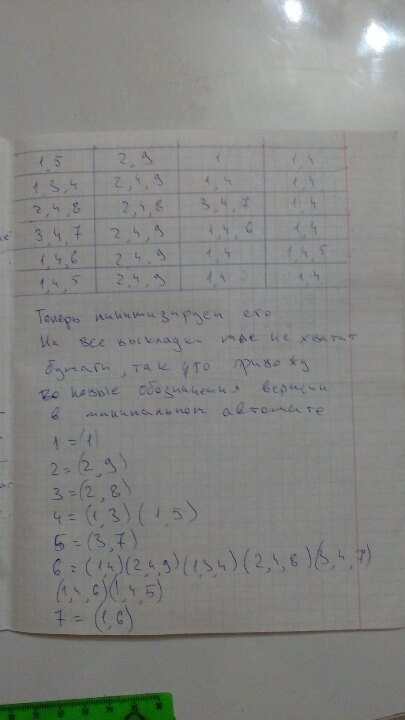 1,5 2,9 1 1,4
1,3,4 2,4,9 1,4 1,4
2,4,8 2,4,8 3,4,7 1,4
3,4,7 2,4,9 1,4,6 1,4
1,4,6 2,4,9 1,4 1,4,5
1,4,5 2,4,9 1,4 1,4
Теперь минимизируем его.
На все выкладки мне не хватит
бумаги, так что привожу
новые обозначения вершин
в минимальном автомате
1 = (1)
2 = (2,9)
3 = (2,8)
4 = (1,3) (1,5)
5 = (3,7)
6 = (1,4)(2,4,9)(1,3,4)(2,4,8)(3,4,7)
(1,4,6)(1,4,5)
7 = (1,6)